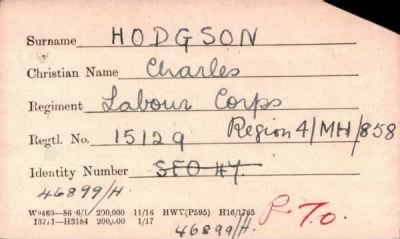 Surname HODGSON
Christian Name Charles
Regiment Labour Corps
Regtl. No. 15129 Region 4/MH/858
Identity Number SFO H7.
46899/H.
W9469—86 6/1 200,000 11/16 HWV(P595) H16/1765
13771—H3184 200,000 1/17 46899/H.
P.T.O.